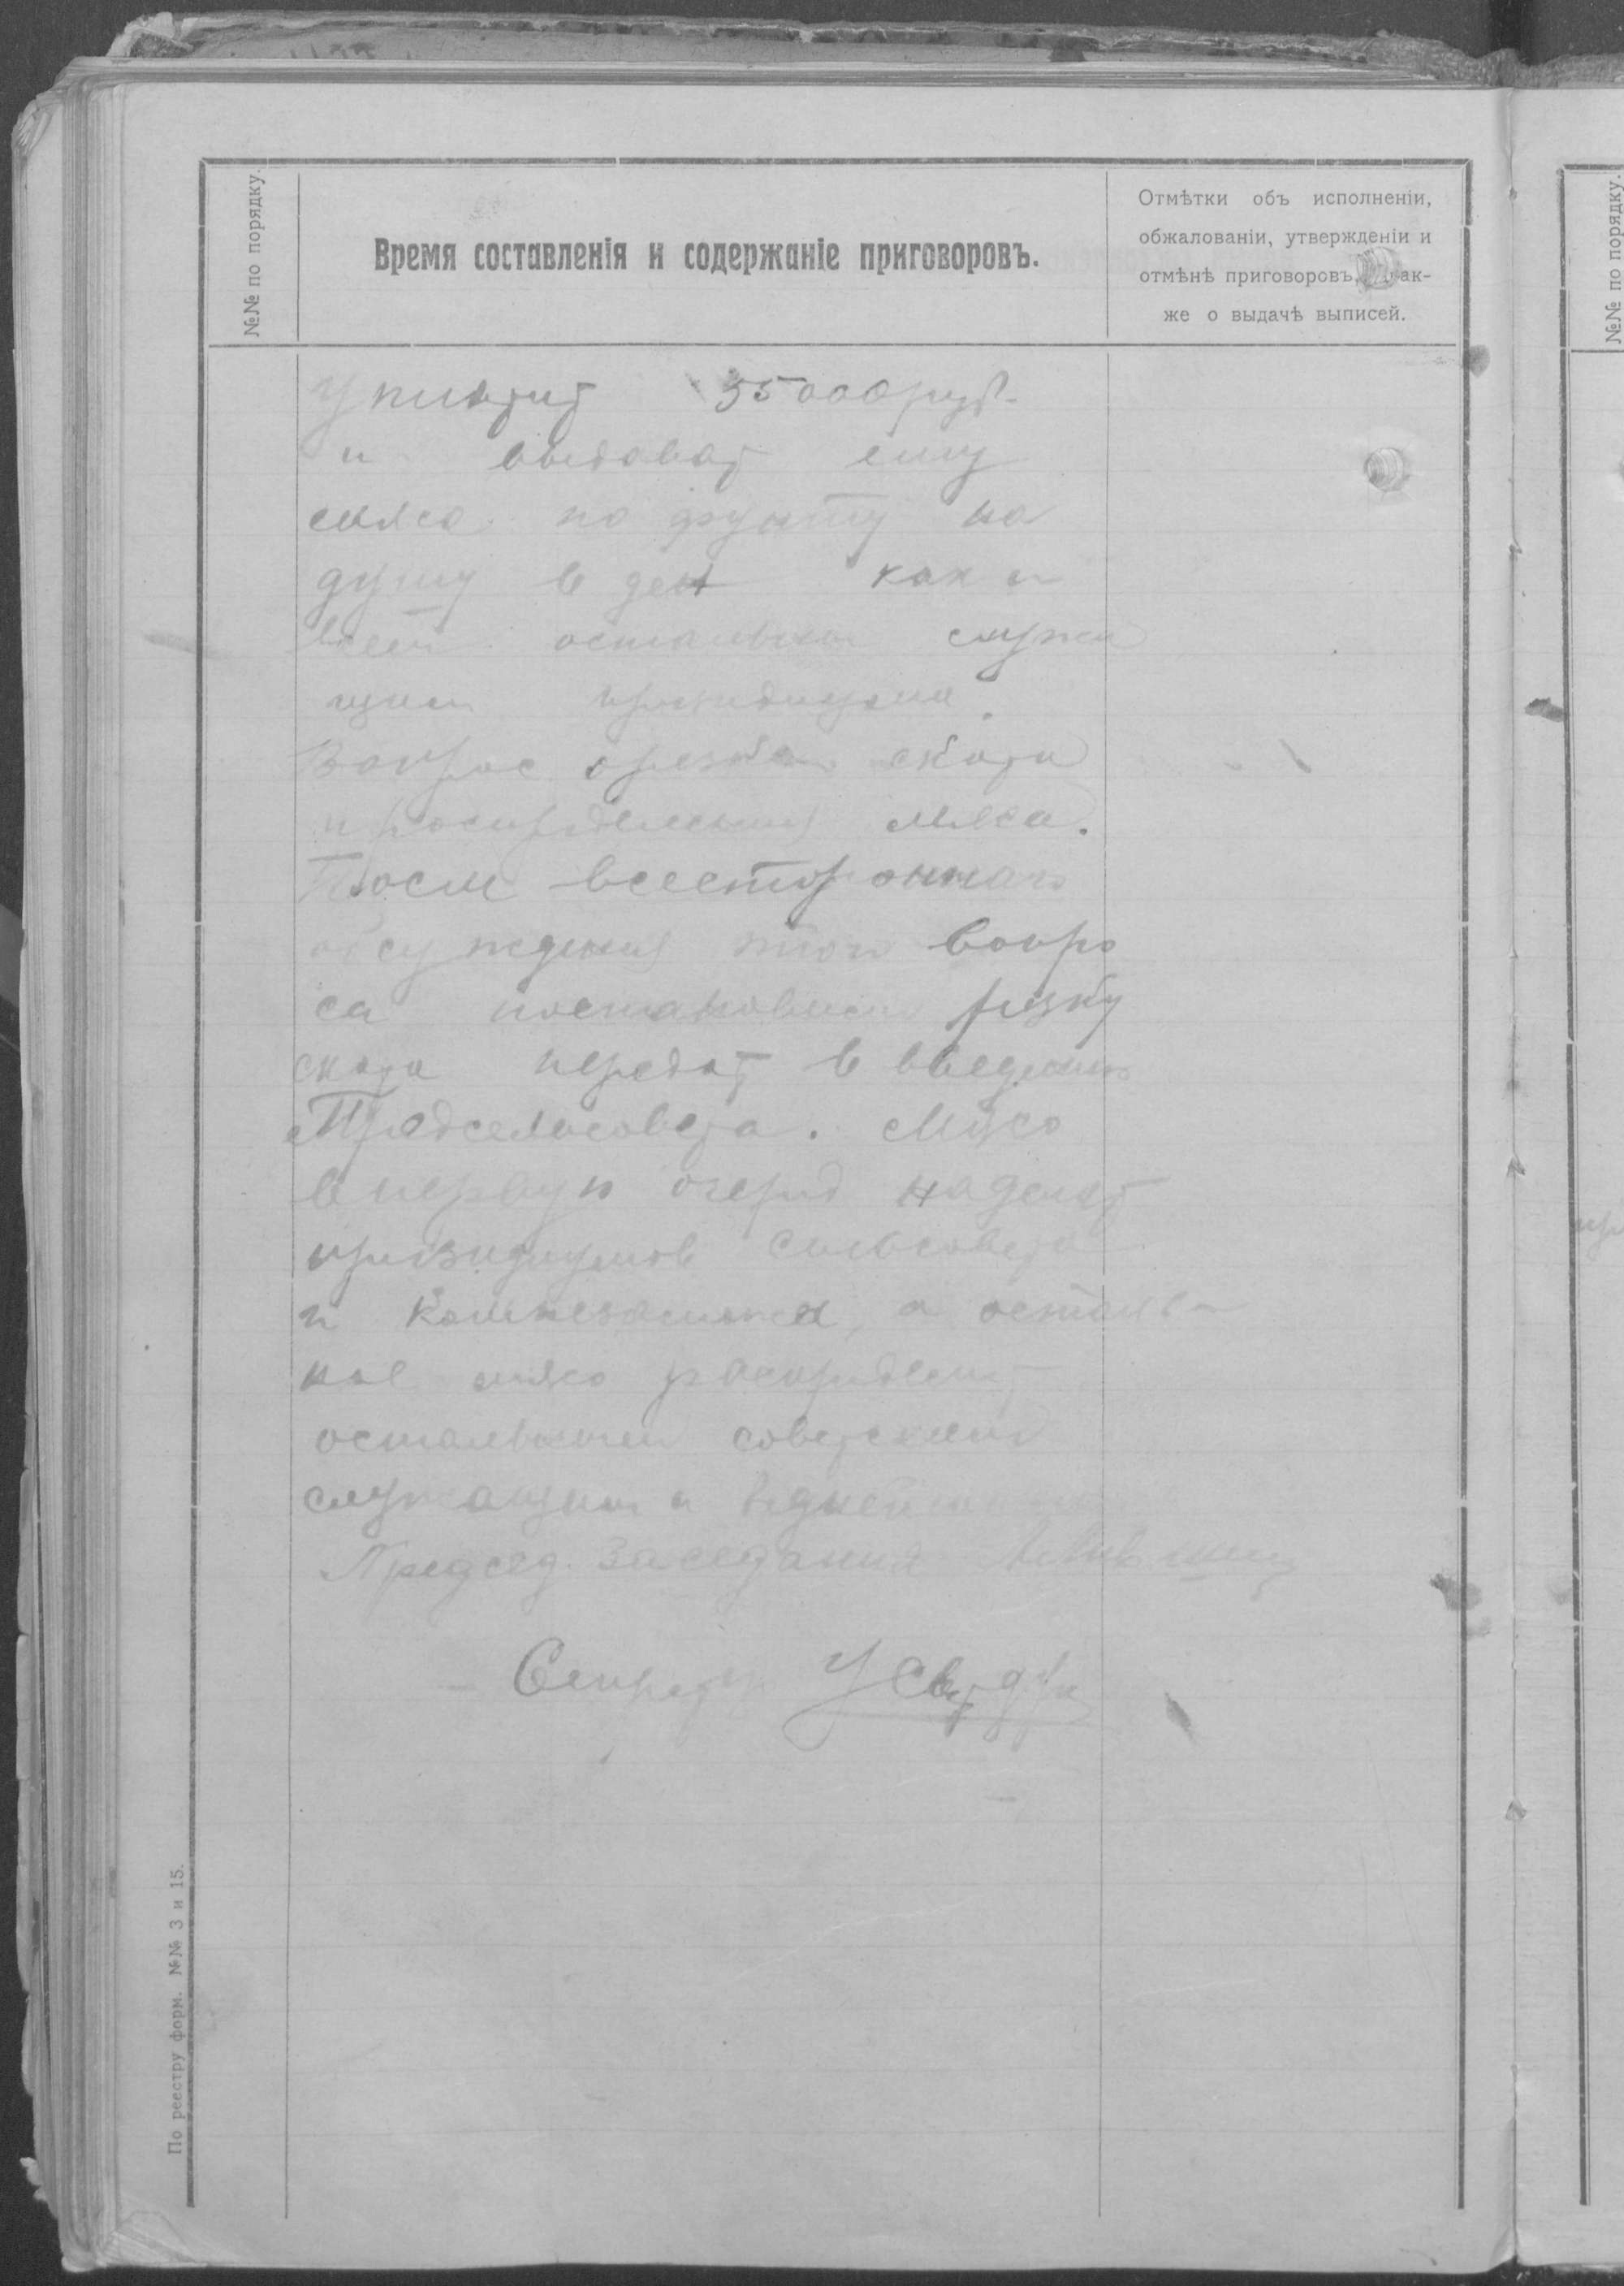 №№ по порядку.
Время составленія и содержаніе приговоровъ.
Отмѣтки объ исполненіи,
обжалованіи, утвержденіи и
отмѣнѣ приговоровъ, ак-
же о выдачѣ выписей.
уплатит 35000 руб.
и выдават ему
мяса по фунту на
душу в ден как и
всем остальным служа
щим призидиума.
Вопрос о резки скота
и распределения мяса.
После всестороннаго
обсуждения этого вопро
са постановили резку
скота передат в введению
Предсельсовета. Мясо
в первую очеред наделят
призидиумов Сельсовета
и Комнезаможа, а осталь
ное мясо распределит
остальным советским
служащим и беднейшим
Председ. Заседания
Секретар
По реестру форм. №№ 3 и 15.
№№ по порядку.